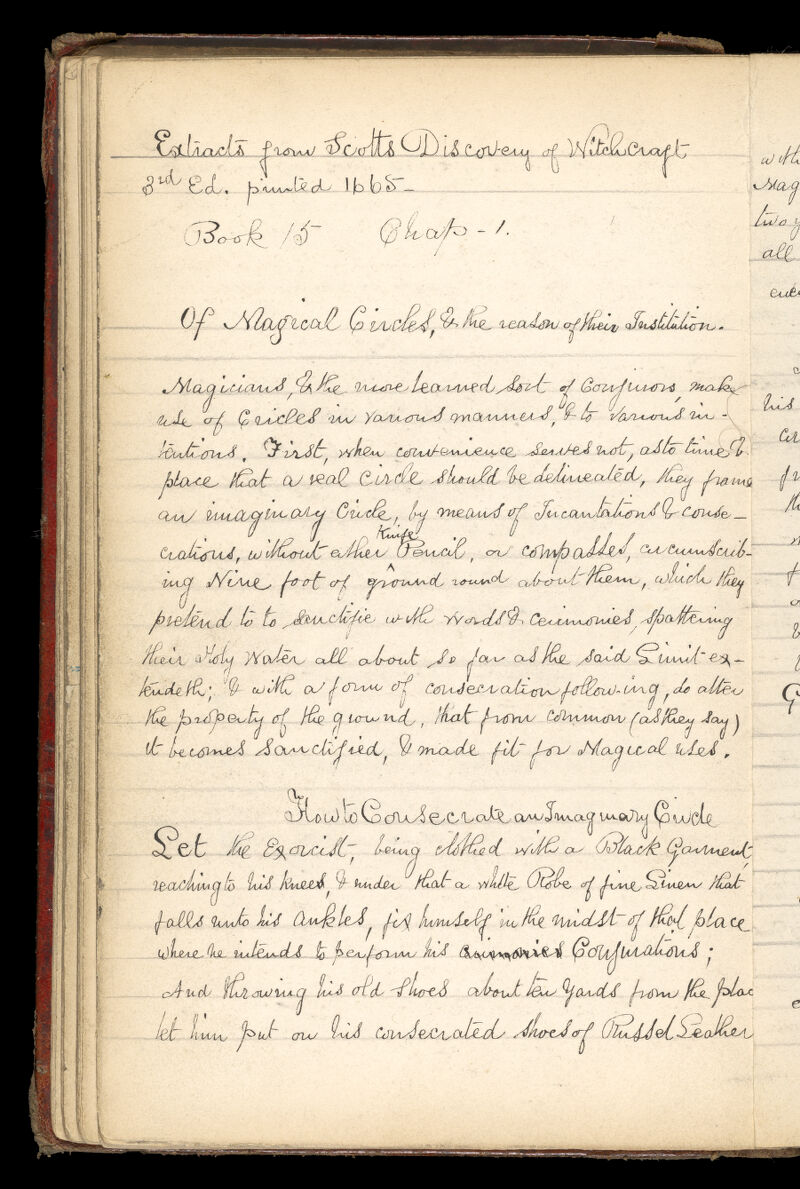 Extracts from Scotts Discovery of Witchcraft
3rd Ed. printed 1665-
Book 15 Chap - 1.
Of Magical Circles, & the reason of their Institution.
Magicians, & the more learned sort of Conjurors, make
use of Circles in various manners, & to various in-
tentions. First, when convenience serves not, as to time &
place that a real Circle should be delineated, they frame
an imaginary Circle, by means of Incantations & conse-
crations, without either Knife Pencil, or compasses, circumscrib-
ing Nine foot of ground round about them, which they
pretend to to sanctifie with words & ceremonies, spattering
their Holy Water all about so far as the said Limit ex-
tendeth; & with a form of consecration follow-ing, do alter
the property of the ground, that from common (as they say)
it becomes sanctified, & made fit for Magical uses.
How to Consecrate an Imaginary Circle
Let the Exorcist, being clothed with a Black Garment,
reaching to his knees, & under that a white Robe of fine Linen that
falls unto his ankles, fix himself in the midst of that place
where he intends to perform his Conjurations;
And throwing his old shoes about ten yards from the plac
let him put on his consecrated shoes of Russet Leather
with
Mag
two y
all
his